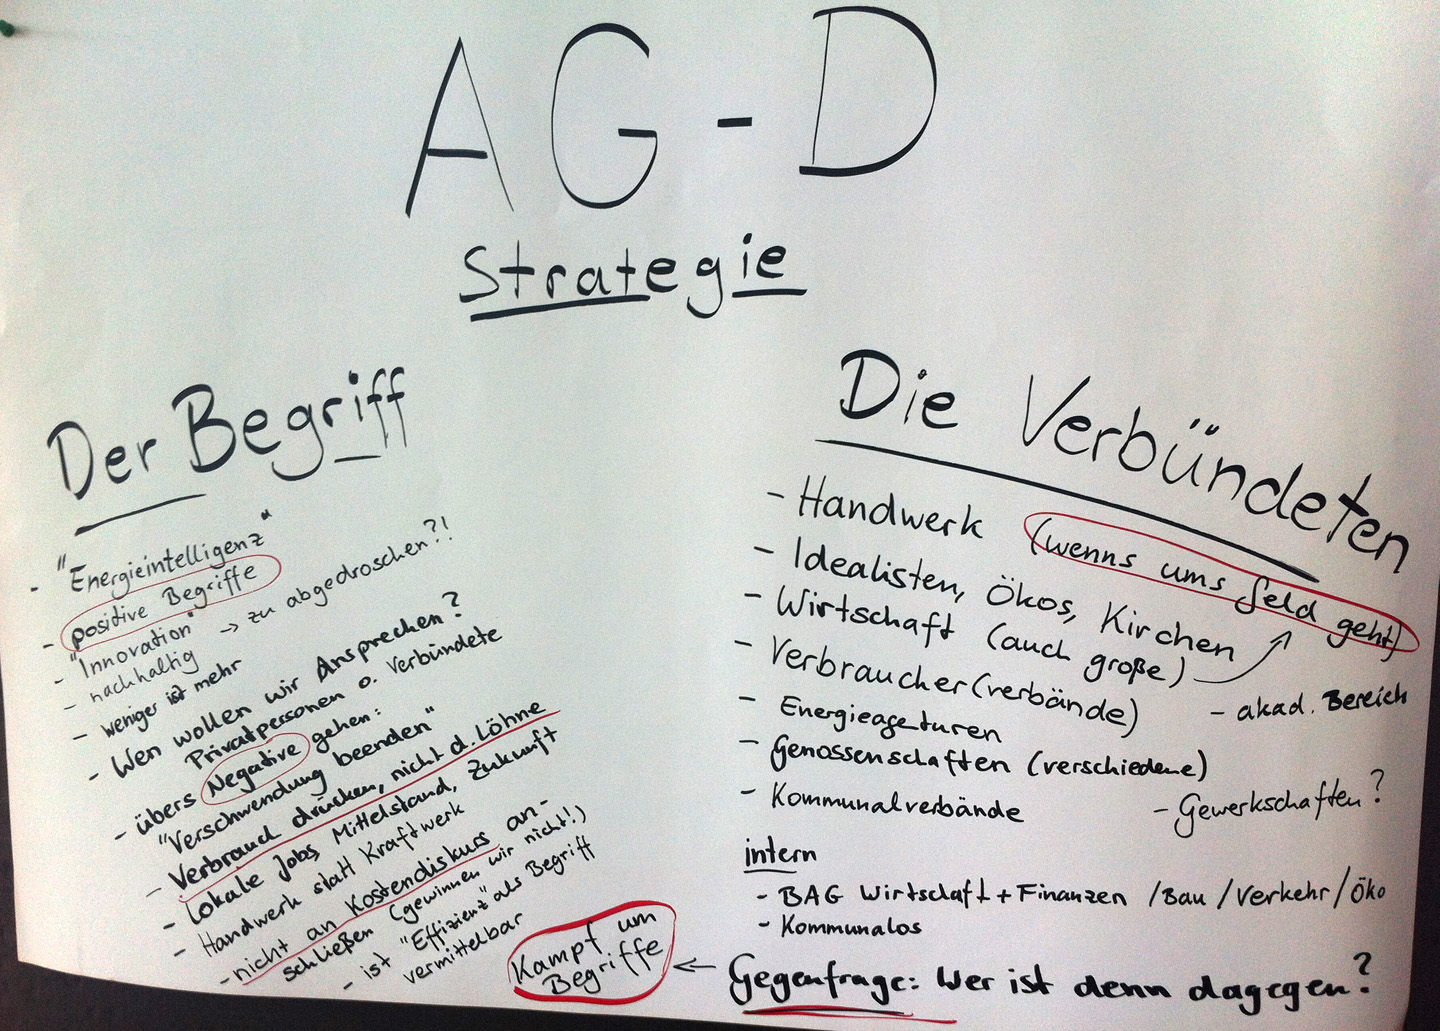 AG-D
Strategie
Der Begriff
- "Energieintelligenz"
- positive Begriffe
- "Innovation" → zu abgedroschen?!
- nachhaltig
- weniger ist mehr
- Wen wollen wir Ansprechen?
Privatpersonen o. Verbündete
- übers Negative gehen:
"Verschwendung beenden"
- Verbrauch drücken, nicht d. Löhne
- Lokale Jobs, Mittelstand, Zukunft
- Handwerk statt Kraftwerk
- nicht an Kostendiskurs an-
schließen (gewinnen wir nicht!)
- ist "Effizienz" als Begriff
vermittelbar
Die Verbündeten
- Handwerk (wenns ums Geld geht)
- Idealisten, Ökos, Kirchen
- Wirtschaft (auch große)
- Verbraucher(verbände)
- akad. Bereich
- Energieageturen
- Genossenschaften (verschiedene)
- Kommunalverbände
- Gewerkschaften?
intern
- BAG Wirtschaft + Finanzen / Bau / Verkehr / Öko
- Kommunalos
Kampf um
Begriffe
← Gegenfrage: Wer ist denn dagegen?